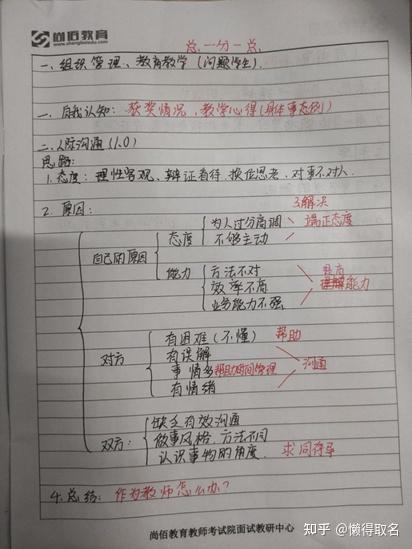 尚佰教育
www.shangbaiedu.com
总一分一总
一、组织管理、教育教学(问题学生).
一、自我认知: 获奖情况、教学心得(具体事态例)
二、人际沟通(1.0)
思路:
1.态度: 理性客观、辩证看待、换位思考、对事不对人.
3解决
2.原因:
自己的原因
态度
为人过分高调
不够主动
端正态度
能力
方法不对
效率不高
业务能力不强
提高
能力
对方
有困难(不懂) 帮助
有误解
事情多 帮助时间管理
有情绪
沟通
双方:
缺乏有效沟通
做事风格、方法不同
认识事物的角度. 求同存异
4.总结: 作为教师怎么办?
尚佰教育教师考试院面试教研中心
知乎 @懒得取名